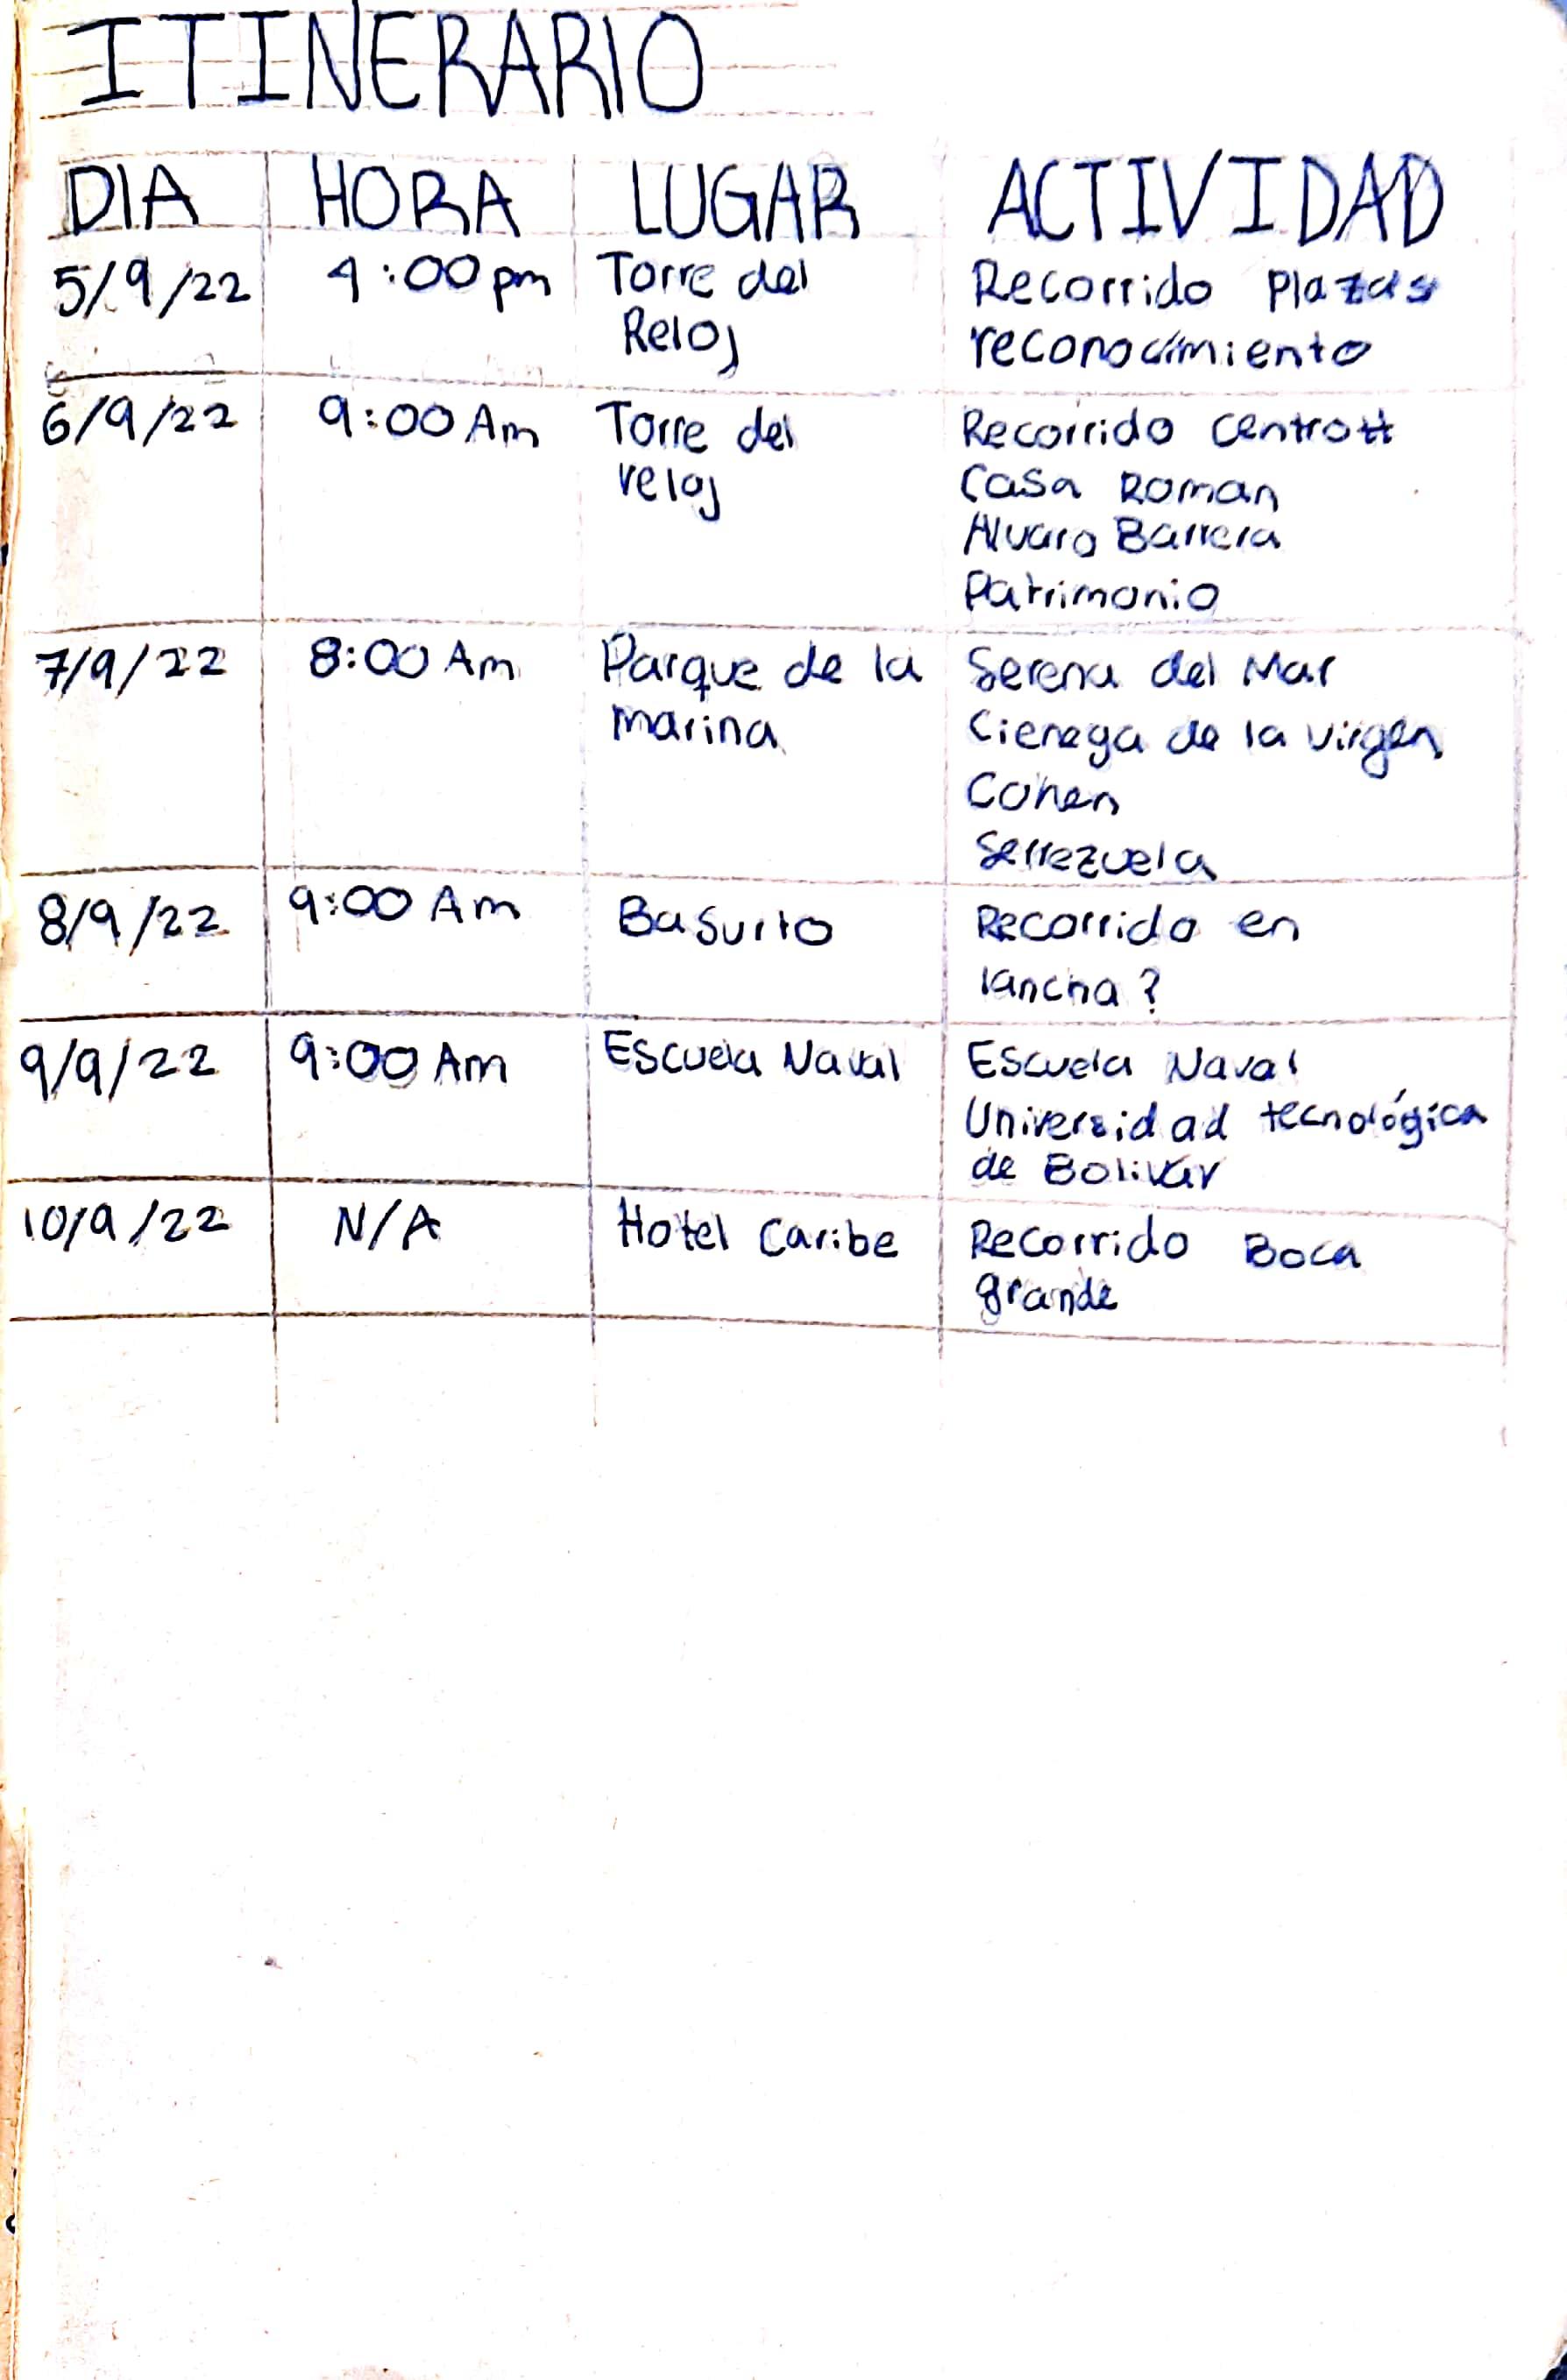 ITINERARIO
DIA HORA LUGAR ACTIVIDAD
5/9/22 4:00 pm Torre del Recorrido Plazas
Reloj reconocimiento
6/9/22 9:00 Am Torre del Recorrido centro
reloj Casa Roman
Alvaro Barrera
Patrimonio
7/9/22 8:00 Am Parque de la Serena del Mar
marina Cienega de la virgen
Cohen
Serrezuela
8/9/22 9:00 Am Basurto Recorrido en
lancha?
9/9/22 9:00 Am Escuela Naval Escuela Naval
Universidad tecnológica
de Bolivar
10/9/22 N/A Hotel Caribe Recorrido Boca
grande